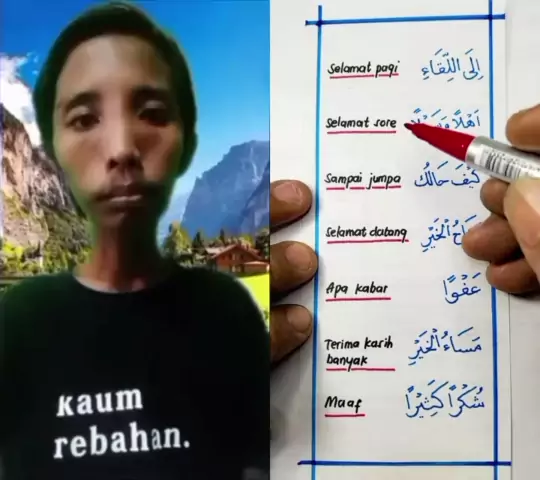 Kaum
rebahan.
Selamat pagi إِلَى اللِّقَاءِ
Selamat sore أَهْلًا
Sampai jumpa كَيْفَ حَالُكَ
Selamat datang الْخَيْرِ
Apa kabar عَفْوًا
Terima kasih
banyak مَسَاءُ الْخَيْرِ
Maaf شُكْرًا كَثِيْرًا